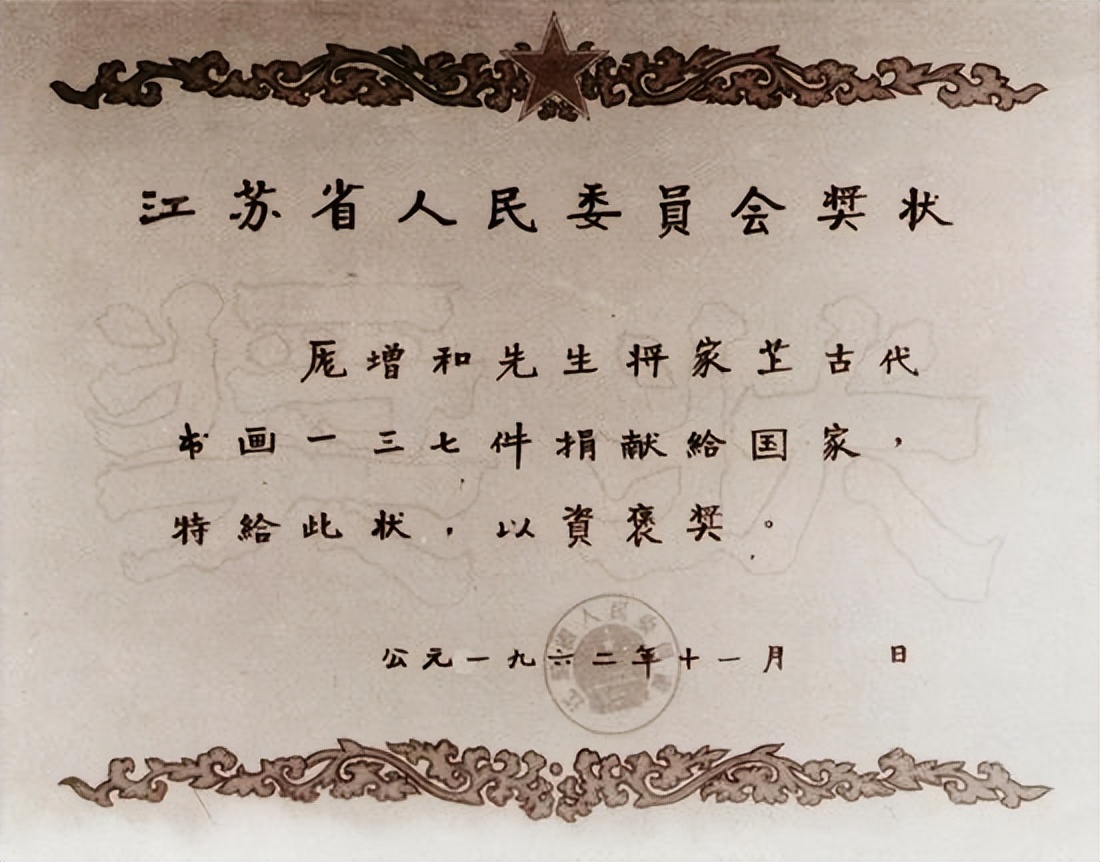 江苏省人民委員会奬状
厐增和先生将家芷古代
书画一三七件捐献給国家，
特給此状，以資褒奬。
公元一九六二年十一月　　日